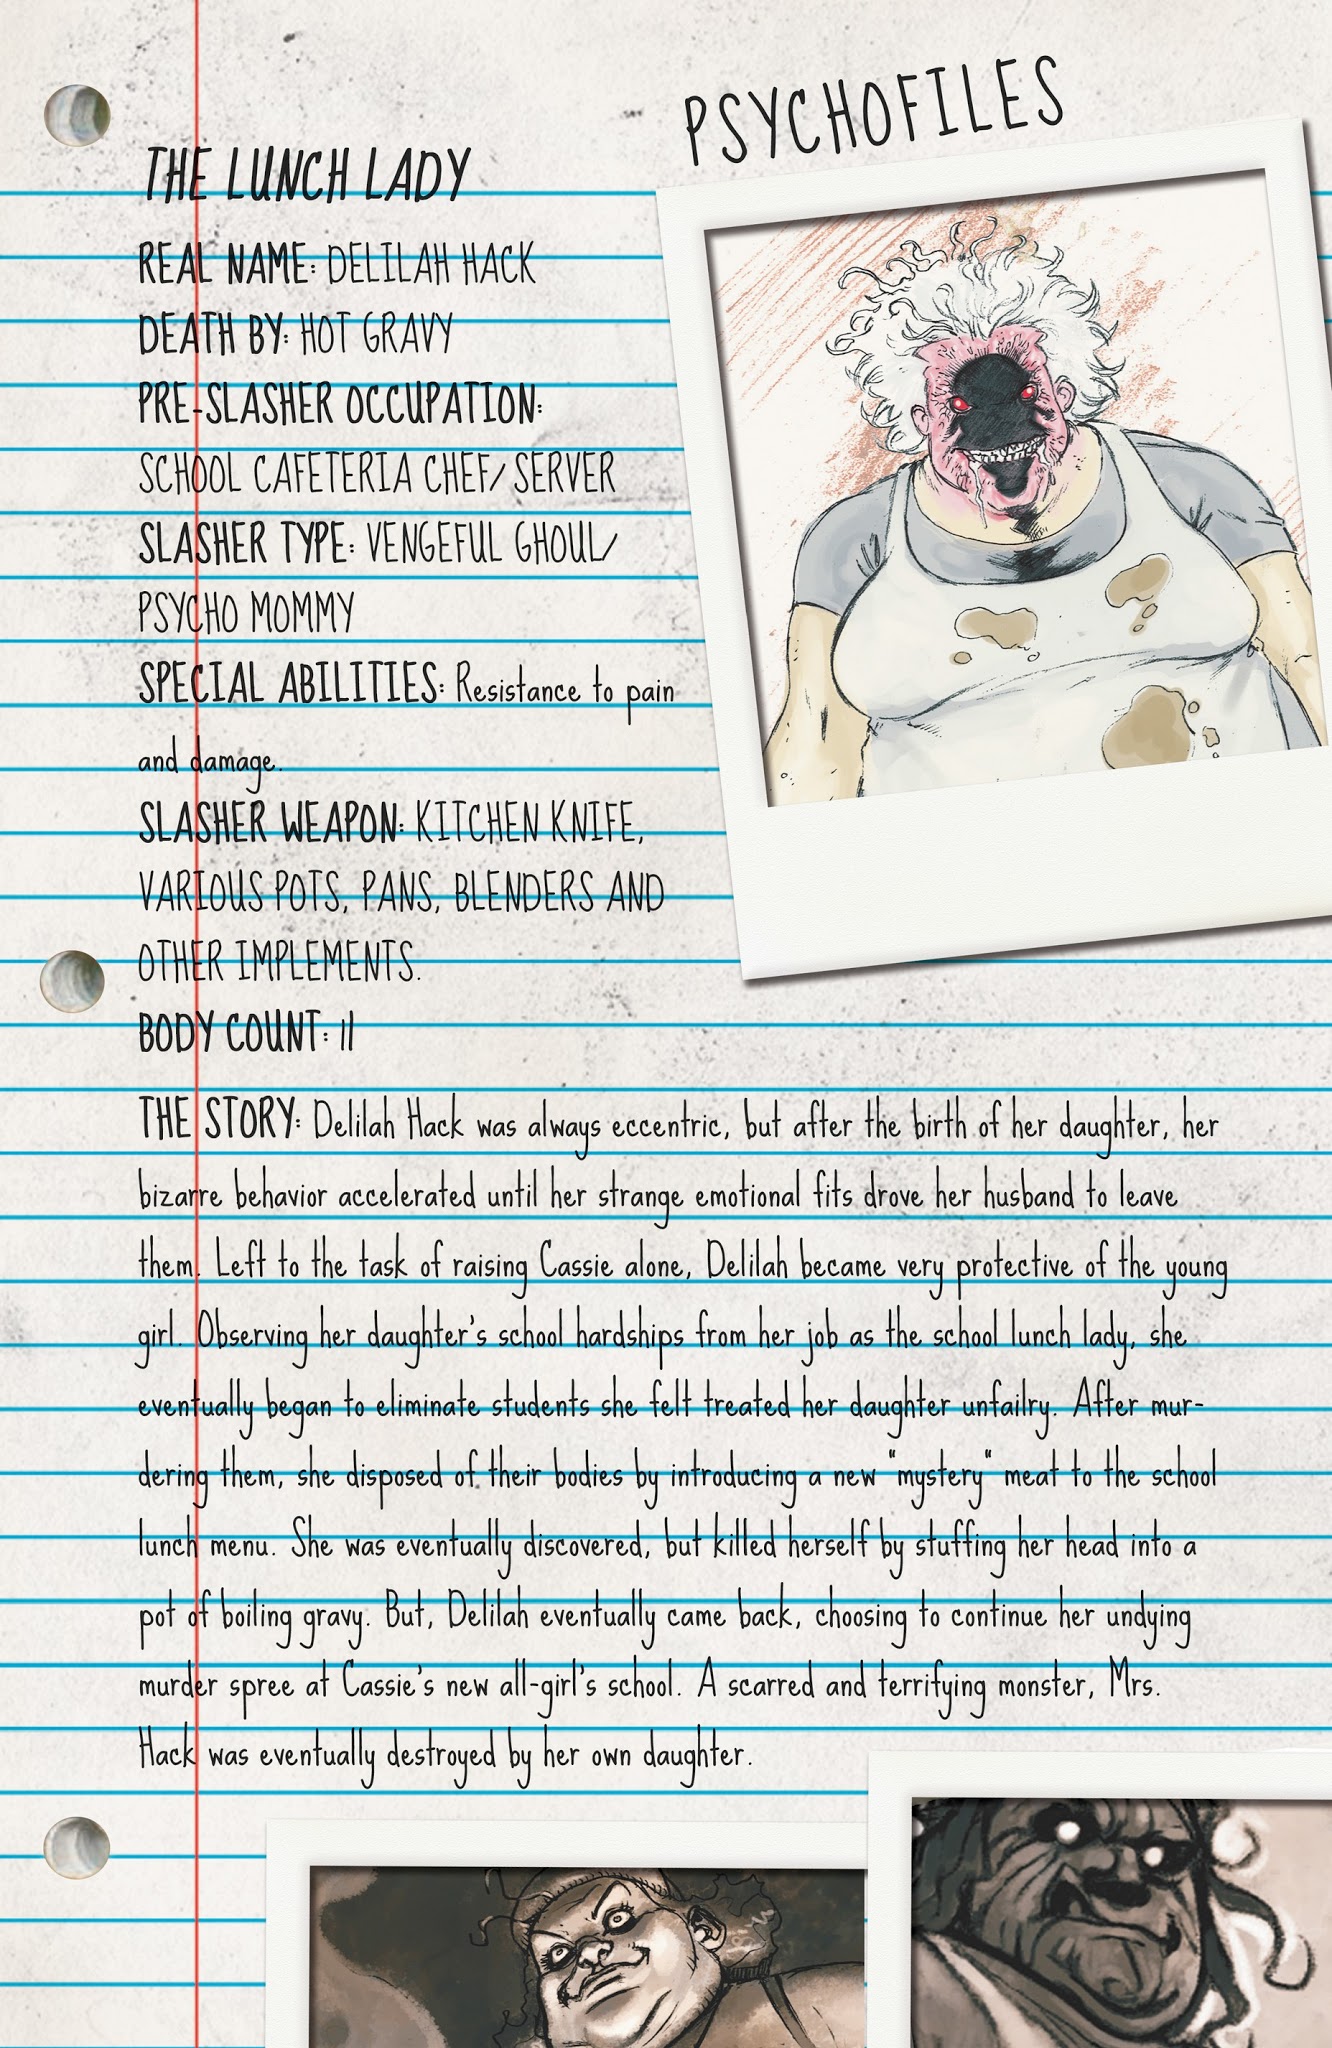 PSYCHOFILES
THE LUNCH LADY
REAL NAME: DELILAH HACK
DEATH BY: HOT GRAVY
PRE-SLASHER OCCUPATION:
SCHOOL CAFETERIA CHEF/SERVER
SLASHER TYPE: VENGEFUL GHOUL/
PSYCHO MOMMY
SPECIAL ABILITIES: Resistance to pain
and damage.
SLASHER WEAPON: KITCHEN KNIFE,
VARIOUS POTS, PANS, BLENDERS AND
OTHER IMPLEMENTS.
BODY COUNT: 11
THE STORY: Delilah Hack was always eccentric, but after the birth of her daughter, her
bizarre behavior accelerated until her strange emotional fits drove her husband to leave
them. Left to the task of raising Cassie alone, Delilah became very protective of the young
girl. Observing her daughter's school hardships from her job as the school lunch lady, she
eventually began to eliminate students she felt treated her daughter unfailry. After mur-
dering them, she disposed of their bodies by introducing a new "mystery" meat to the school
lunch menu. She was eventually discovered, but killed herself by stuffing her head into a
pot of boiling gravy. But, Delilah eventually came back, choosing to continue her undying
murder spree at Cassie's new all-girl's school. A scarred and terrifying monster, Mrs.
Hack was eventually destroyed by her own daughter.